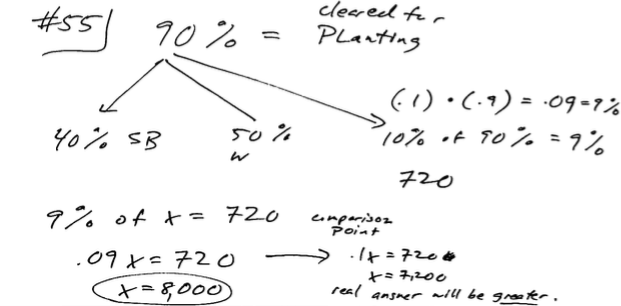 #55
90% = cleared for
Planting
40% SB
50%
W
(.1) · (.9) = .09=9%
10% of 90% = 9%
720
9% of x = 720
comparison
Point
.09x = 720
.1x = 720
x = 7,200
x = 8,000
real answer will be greater.